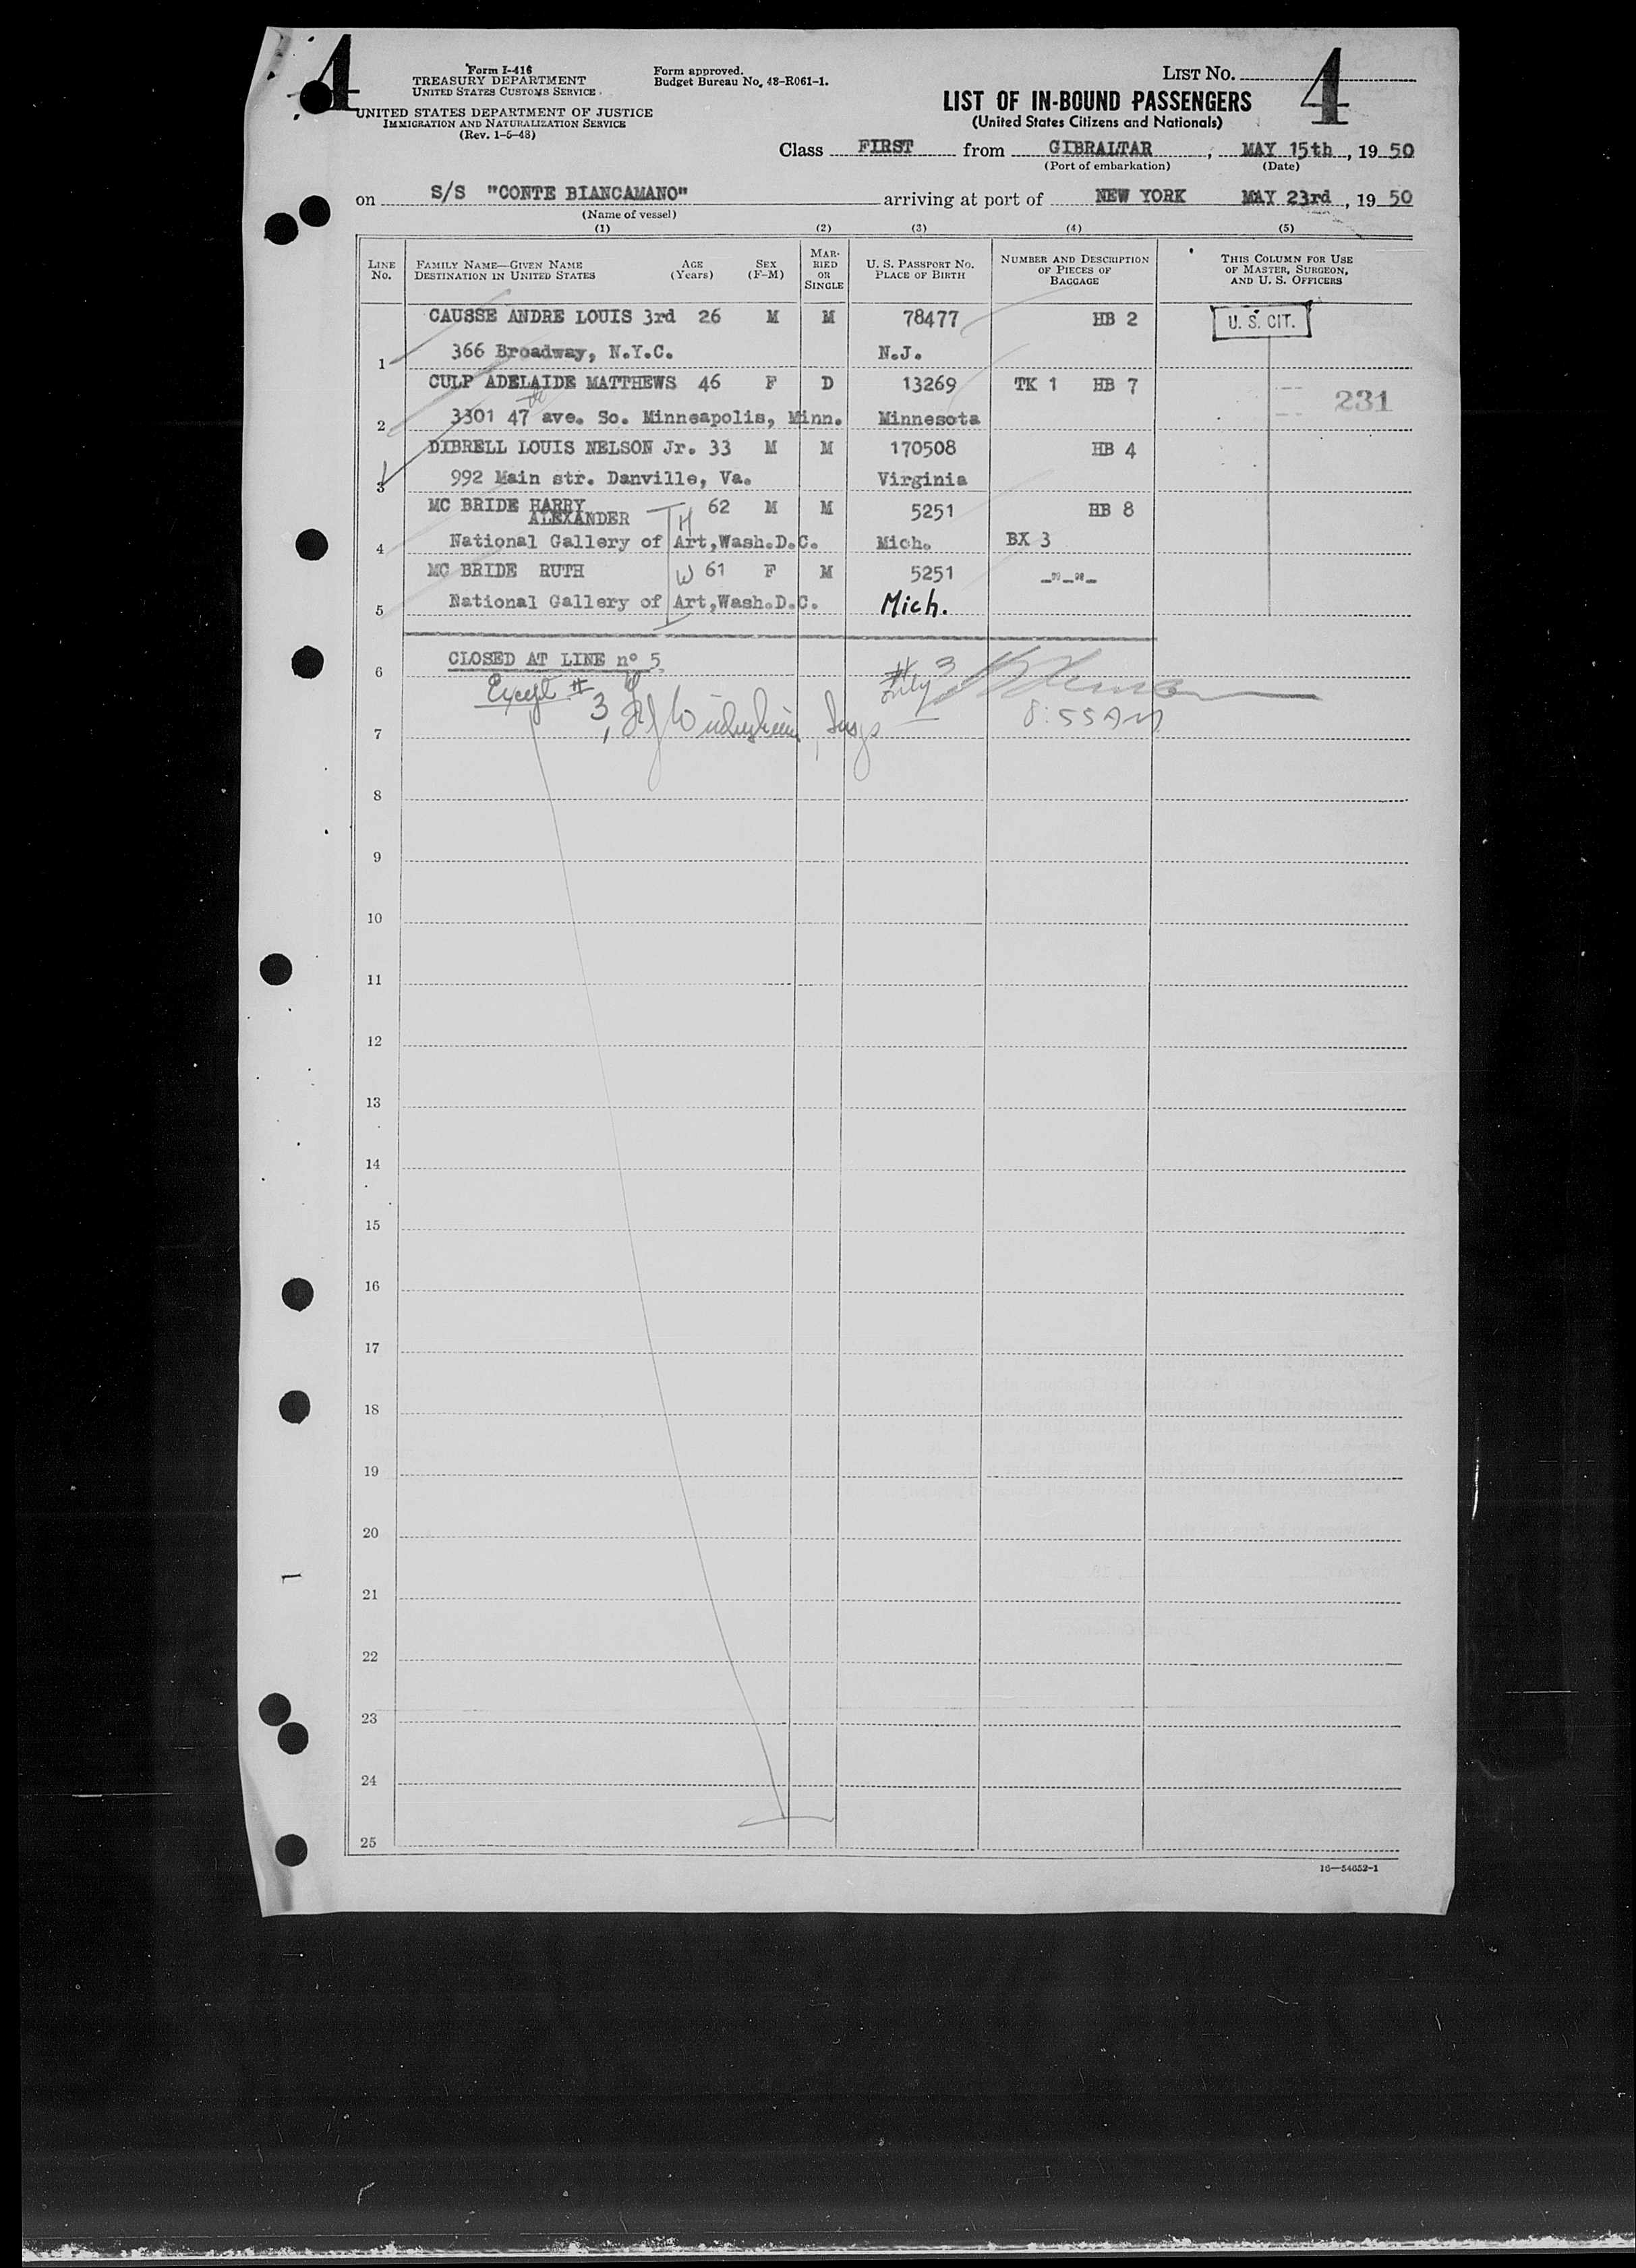 4
Form I-416
TREASURY DEPARTMENT
UNITED STATES CUSTOMS SERVICE
UNITED STATES DEPARTMENT OF JUSTICE
IMMIGRATION AND NATURALIZATION SERVICE
(Rev. 1-5-48)
Form approved.
Budget Bureau No. 43-R061-1.
LIST NO.
4
LIST OF IN-BOUND PASSENGERS
(United States Citizens and Nationals)
Class FIRST from GIBRALTAR, MAY 15th, 19 50
(Port of embarkation) (Date)
on S/S "CONTE BIANCAMANO" arriving at port of NEW YORK MAY 23rd, 19 50
(Name of vessel)
(1) (2) (3) (4) (5)
LINE No. FAMILY NAME—GIVEN NAME DESTINATION IN UNITED STATES AGE (Years) SEX (F-M) MARRIED OR SINGLE U. S. PASSPORT NO. PLACE OF BIRTH NUMBER AND DESCRIPTION OF PIECES OF BAGGAGE THIS COLUMN FOR USE OF MASTER, SURGEON, AND U. S. OFFICERS
CAUSSE ANDRE LOUIS 3rd 26 M M 78477 HB 2 U. S. CIT.
1 366 Broadway, N.Y.C. N.J.
CULP ADELAIDE MATTHEWS 46 F D 13269 TK 1 HB 7 231
2 3301 47 ave. So. Minneapolis, Minn. Minnesota
DIBRELL LOUIS NELSON Jr. 33 M M 170508 HB 4
3 992 Main str. Danville, Va. Virginia
MC BRIDE HARRY ALEXANDER H 62 M M 5251 HB 8
4 National Gallery of Art,Wash.D.C. Mich. BX 3
MC BRIDE RUTH W 61 F M 5251 -"-"-
5 National Gallery of Art,Wash.D.C. Mich.
6 CLOSED AT LINE n° 5
Except # 3 # 3 only
8:55 AM
7
8
9
10
11
12
13
14
15
16
17
18
19
20
21
22
23
24
25
16—54652-1